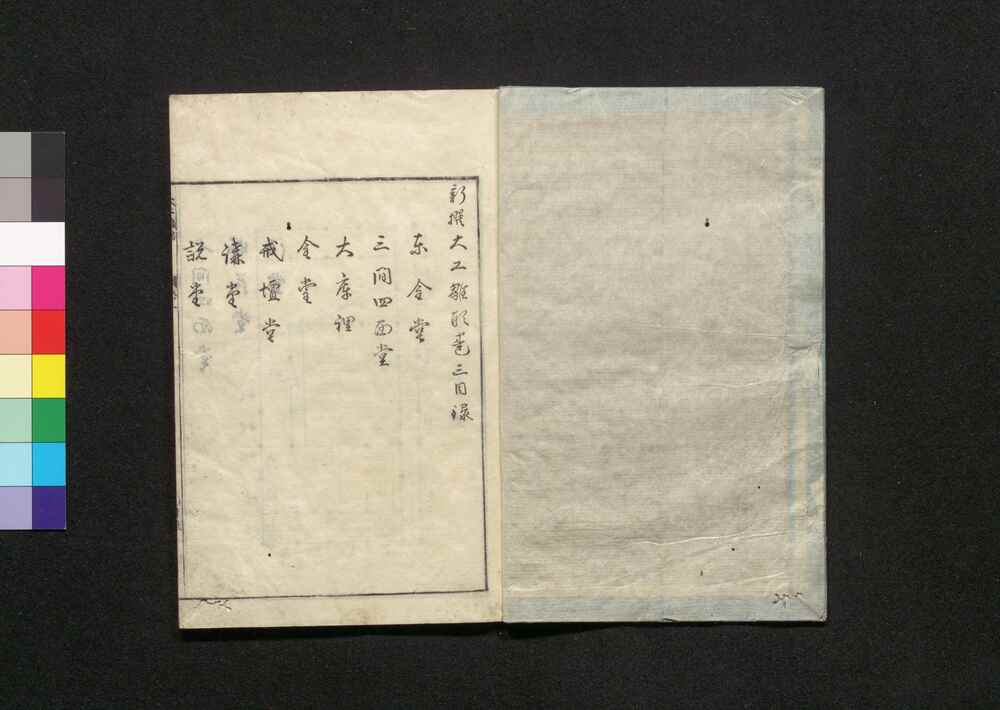 新撰大工雛形巻三目録
東金堂
三間四面堂
大庫裡
金堂
戒壇堂
講堂
説堂